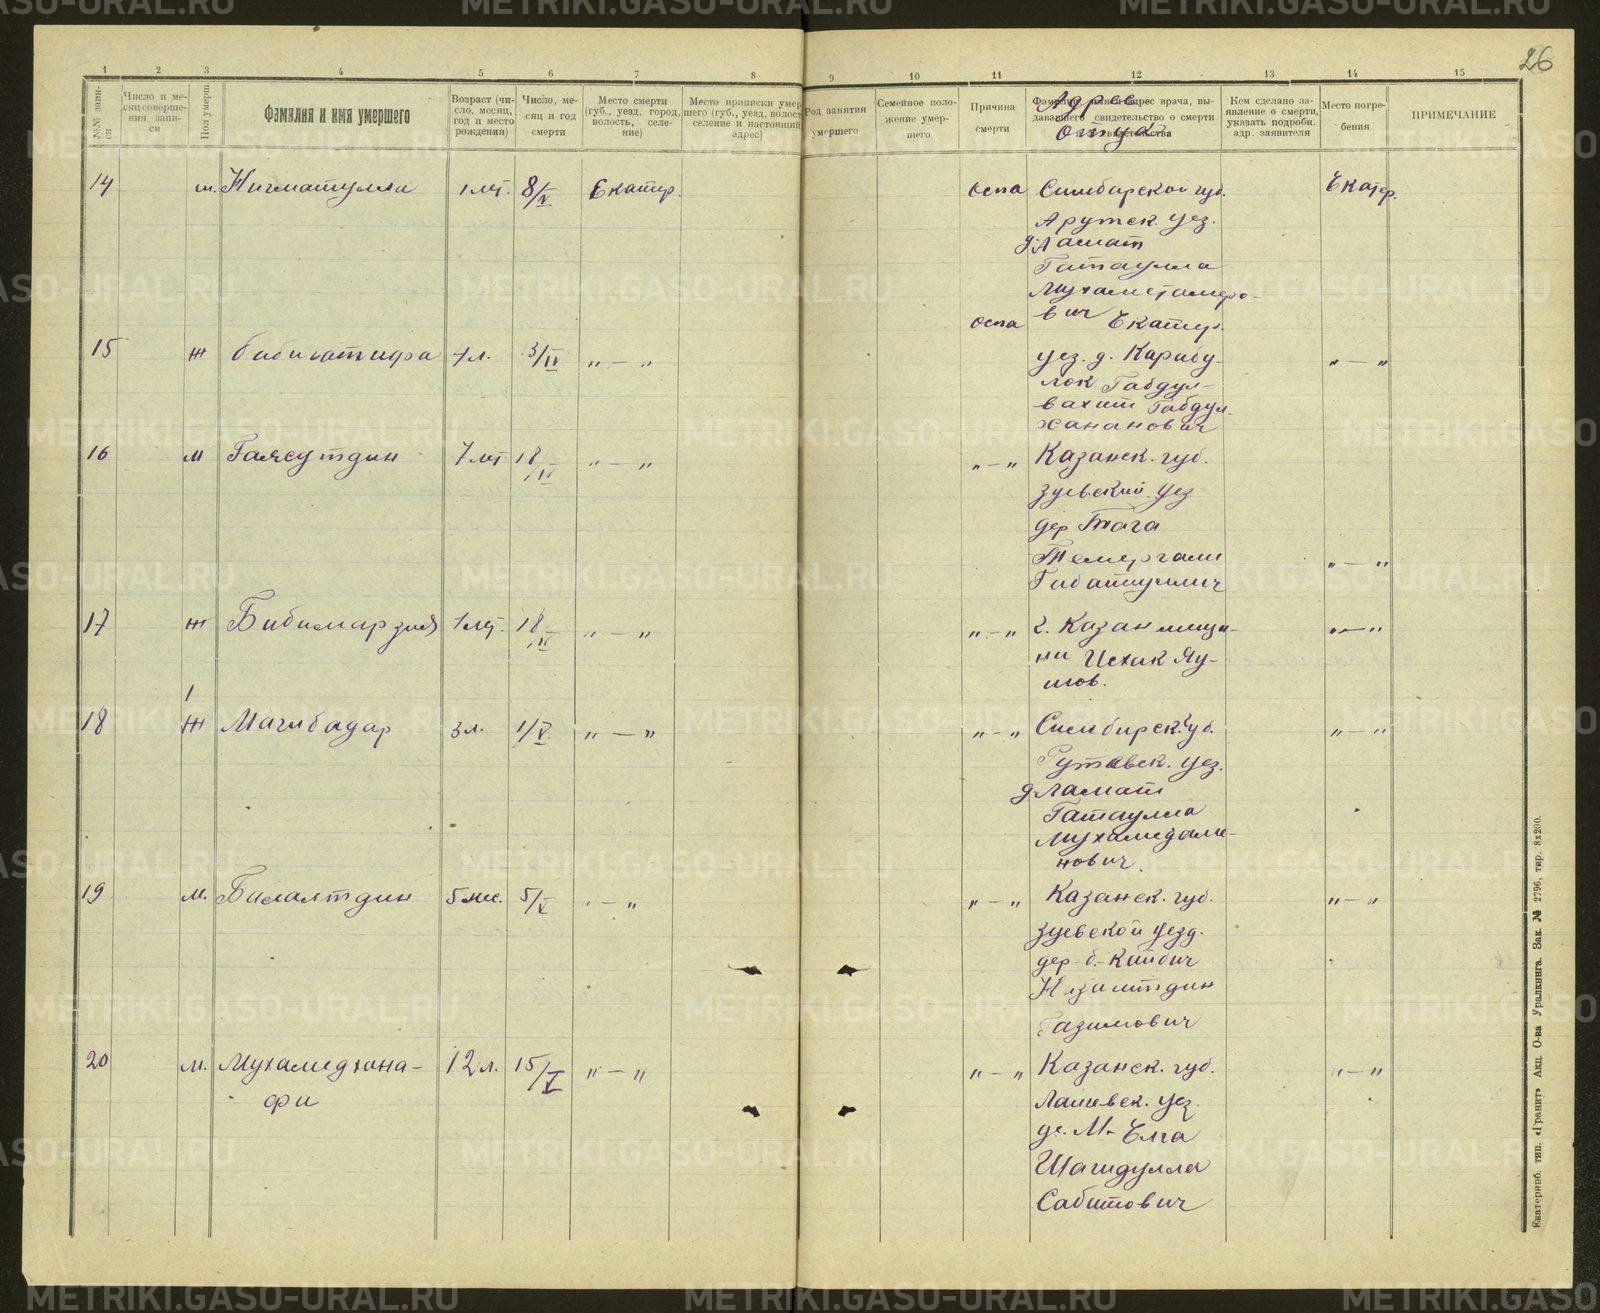 26
1 2 3 4 5 6 7 8 9 10 11 12 13 14 15
№№ записи
Число и месяц совершения записи
Пол умерш.
Фамилия и имя умершего
Возраст (число, месяц, год и место рождения)
Число, месяц и год смерти
Место смерти (губ., уезд, город, волость, селение)
Место приписки умершего (губ., уезд, волость селение и настоящий адрес)
Род занятия умершего
Семейное положение умершего
Причина смерти
Адрес
отца
Кем сделано заявление о смерти, указать подробн. адр. заявителя
Место погребения
ПРИМЕЧАНИЕ
14 м. Нигматулла 1 лет. 8/IV Екатер. оспа Симбирской губ. Екатер.
уез.
д.
Гатаулла
вич
15 ж 1 л. 3/IV „ — „ оспа Екатер. „ — „
уез. д. Карабу-
лок Габдул-
вахит Габдул-
хананович
16 м Гаясутдин 7 лет 18/IV „ — „ „ — „ Казанск. губ.
зуевский уез
дер Тага
Темергали „ — „
17 ж Бибимарзия 1 лет. 18/IV „ — „ „ — „ г. Казан меща- „ — „
ни Исхак Яу-
шов.
18 ж Магибадар 3 л. 1/V „ — „ „ — „ Симбирск. губ. „ — „
уез.
д Ламат
Гатаулла
нович.
19 м. Билалтдин 5 мес. 5/V „ — „ „ — „ Казанск. губ. „ — „
зуевской уезд.
дер. б.-Кайбич
Низамтдин
Газимович
20 м. Мухамедхана- 12 л. 15/V „ — „ „ — „ Казанск. губ. „ — „
фи
Лаишевск. уез.
де. М. Елга
Шагидулла
Сабитович
Екатеринб. тип. «Гранит» Акц. О-ва Уралкнига. Зак. № 2796, тир. 8х200.
METRIKI.GASO-URAL.RU